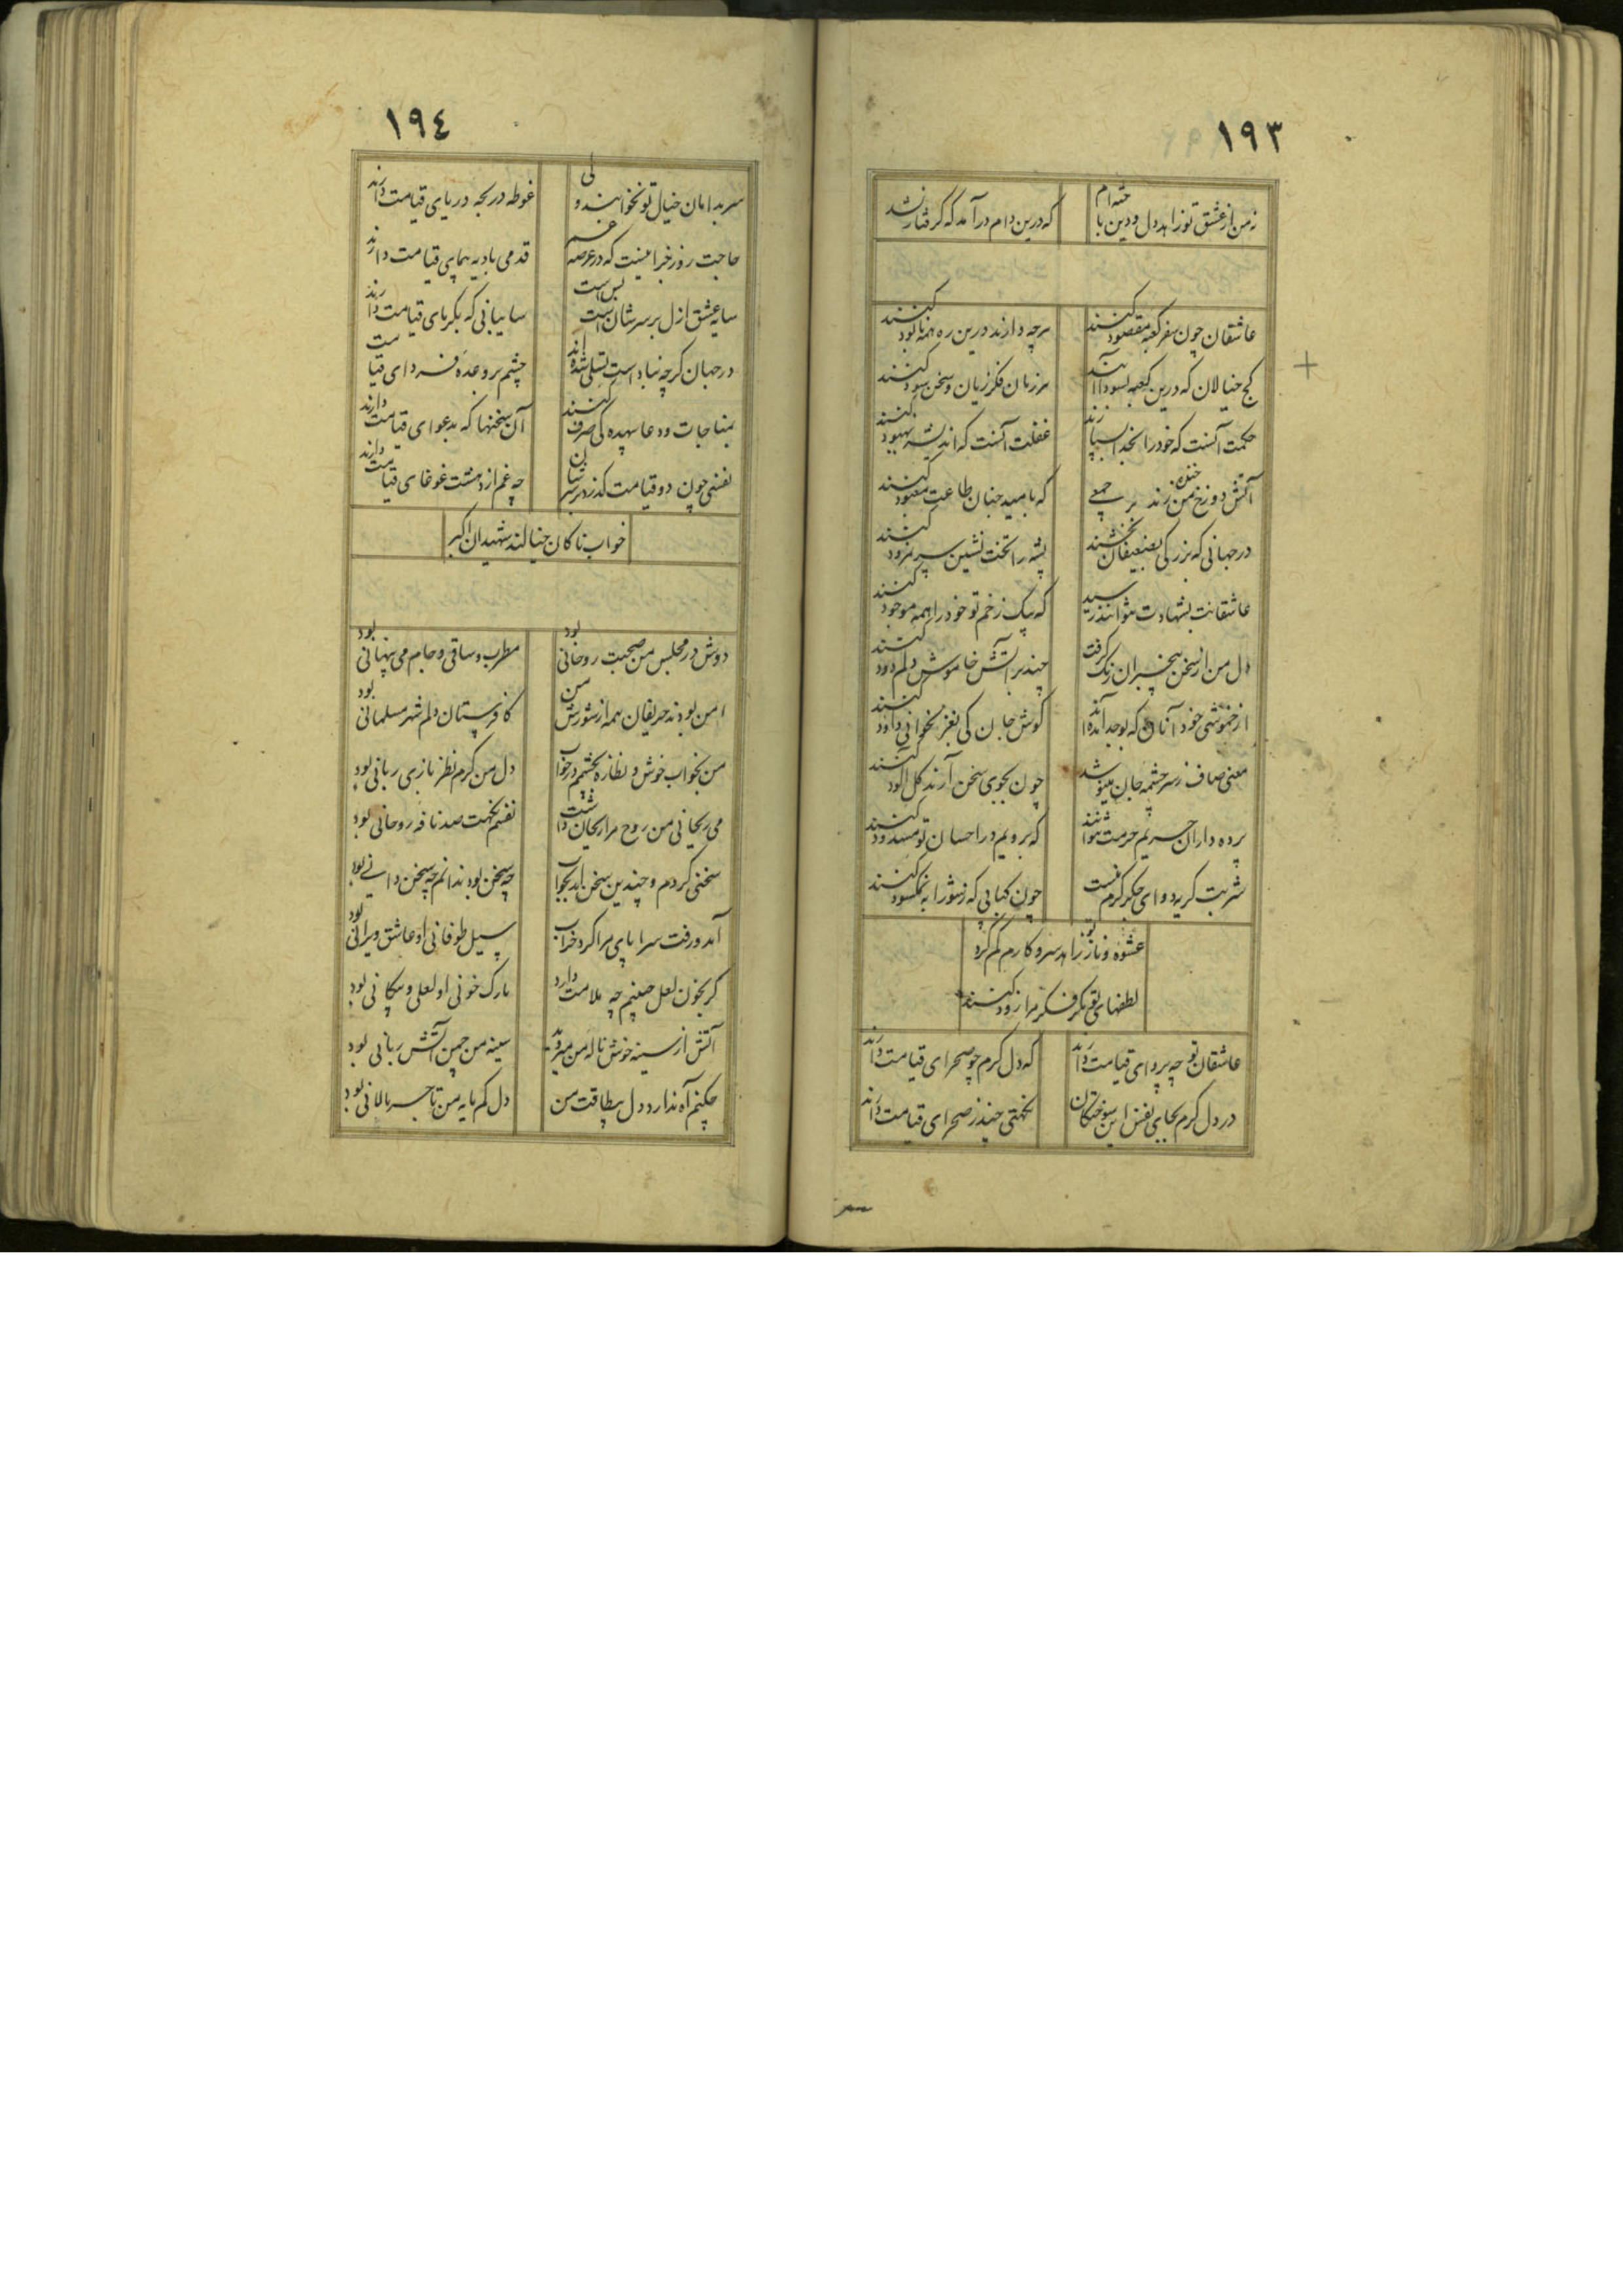 ١٩٣
نه من از عشق تو زاهد دل و دین باخته‌ام
که درین دام درآمد که گرفتار نشد
عاشقان چون سفر کعبه مقصود کنند
هرچه دارند درین ره همه نابود کنند
کج خیالان که درین کعبه بسودا آیند
هر زمان فکر زیان و سخن سود کنند
حکمت آنست که خود را بخدا بسپارند
غفلت آنست که اندیشه بهبود کنند
آتش دوزخ من خنده زند بر جمعی
که بامید جنان طاعت معبود کنند
در جهانی که بزرگی بضعیفان بخشند
پشه را تخت نشین سر نمرود کنند
عاشقانت بشهادت نتوانند رسید
که بیک زخم تو خود را همه موجود کنند
دل من از سخن بیخبران زنگ گرفت
چند بر آتش خاموش دلم دود کنند
از خموشی خود آنان که بوجد آمده‌اند
گوش جان کی بغزلخوانی داود کنند
معنی صاف ز سرچشمه جان مینوشند
چون بجوی سخن آرند گل آلود کنند
پرده داران حریم حرمت نتوانند
که برویم در احسان تو مسدود کنند
شربت گریه دوای جگر گرمم نیست
چون کبابی که ز شورابه نمکسود کنند
عشوه و ناز تو زاهد سر و کارم گم کرد
لطفهای تو مگر فکر مرا زود کنند
عاشقان تو چه پروای قیامت دارند
که دل گرم چو صحرای قیامت دارند
در دل گرم بجای نفس این سوختگان
نکهتی چند ز صحرای قیامت دارند
١٩٤
سر بدامان خیال تو نخوابند ولی
غوطه در لجه دریای قیامت دارند
حاجت روز جزا نیست که در عرصه
قدمی بادیه پیمای قیامت دارند
سایه عشق ازل بر سرشان بس است
سایبانی که بگرمای قیامت دارند
در جهان گرچه تسلی شده‌اند
چشم بر وعده فردای قیامت
بمناجات و دعا بیهده کی صرف کنند
آن سخنها که بدعوای قیامت دارند
نفسی چون دو قیامت گذرد بر سرشان
چه غم از دهشت غوغای قیامت دارند
خوابناکان خیالند شهیدان اکبر
دوش در مجلس من صحبت روحانی بود
مطرب و ساقی و جام می پنهانی بود
امن بودند حریفان همه از شورش من
کافرستان دلم شهر مسلمانی بود
من بخواب خوش و نظاره بچشمم در خواب
دل من گرم نظربازی ربانی بود
می ریحانی من روح مرا ریحان داشت
نفسم نکهت صد نافه روحانی بود
سخنی کردم و چندین سخن آمد بجواب
چه سخن بود ندانم چه سخن دانی بود
آمد و رفت سراپای مرا کرد خراب
سیل طوفانی او عاشق ویرانی بود
گر بخون لعل صنمم چه ملامت دارد
نارک خونی او لعلی و پیکانی بود
آتش از سینه خوش ناله من میروید
سینه من چمن آتش ربانی بود
چکنم آه ندارد دل بیطاقت من
دل کم مایه من تاجر نالانی بود